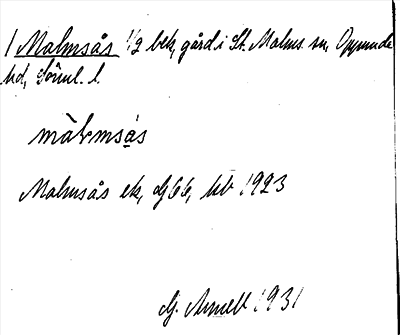 1 Malmsås 1/2 bek, gård i St. Malms sn, Oppunda
hd, Söml. l.
màlmsås
Malmsås ek, G 66, tib 1923
G. Arnell 1931